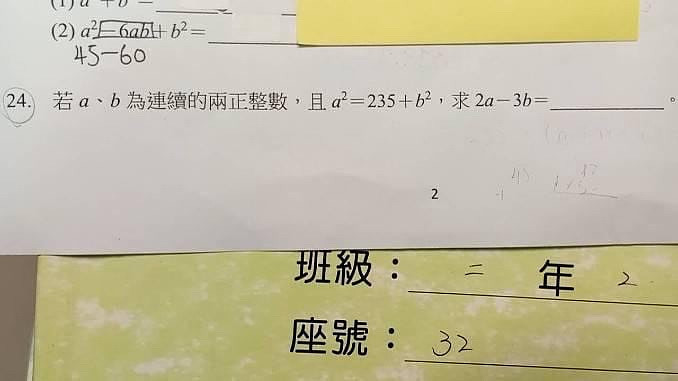 (2) a²−6ab+b²=
45−60
24. 若 a、b 為連續的兩正整數，且 a²=235+b²，求 2a−3b=________。
2
班級： 二 年 2
座號： 32